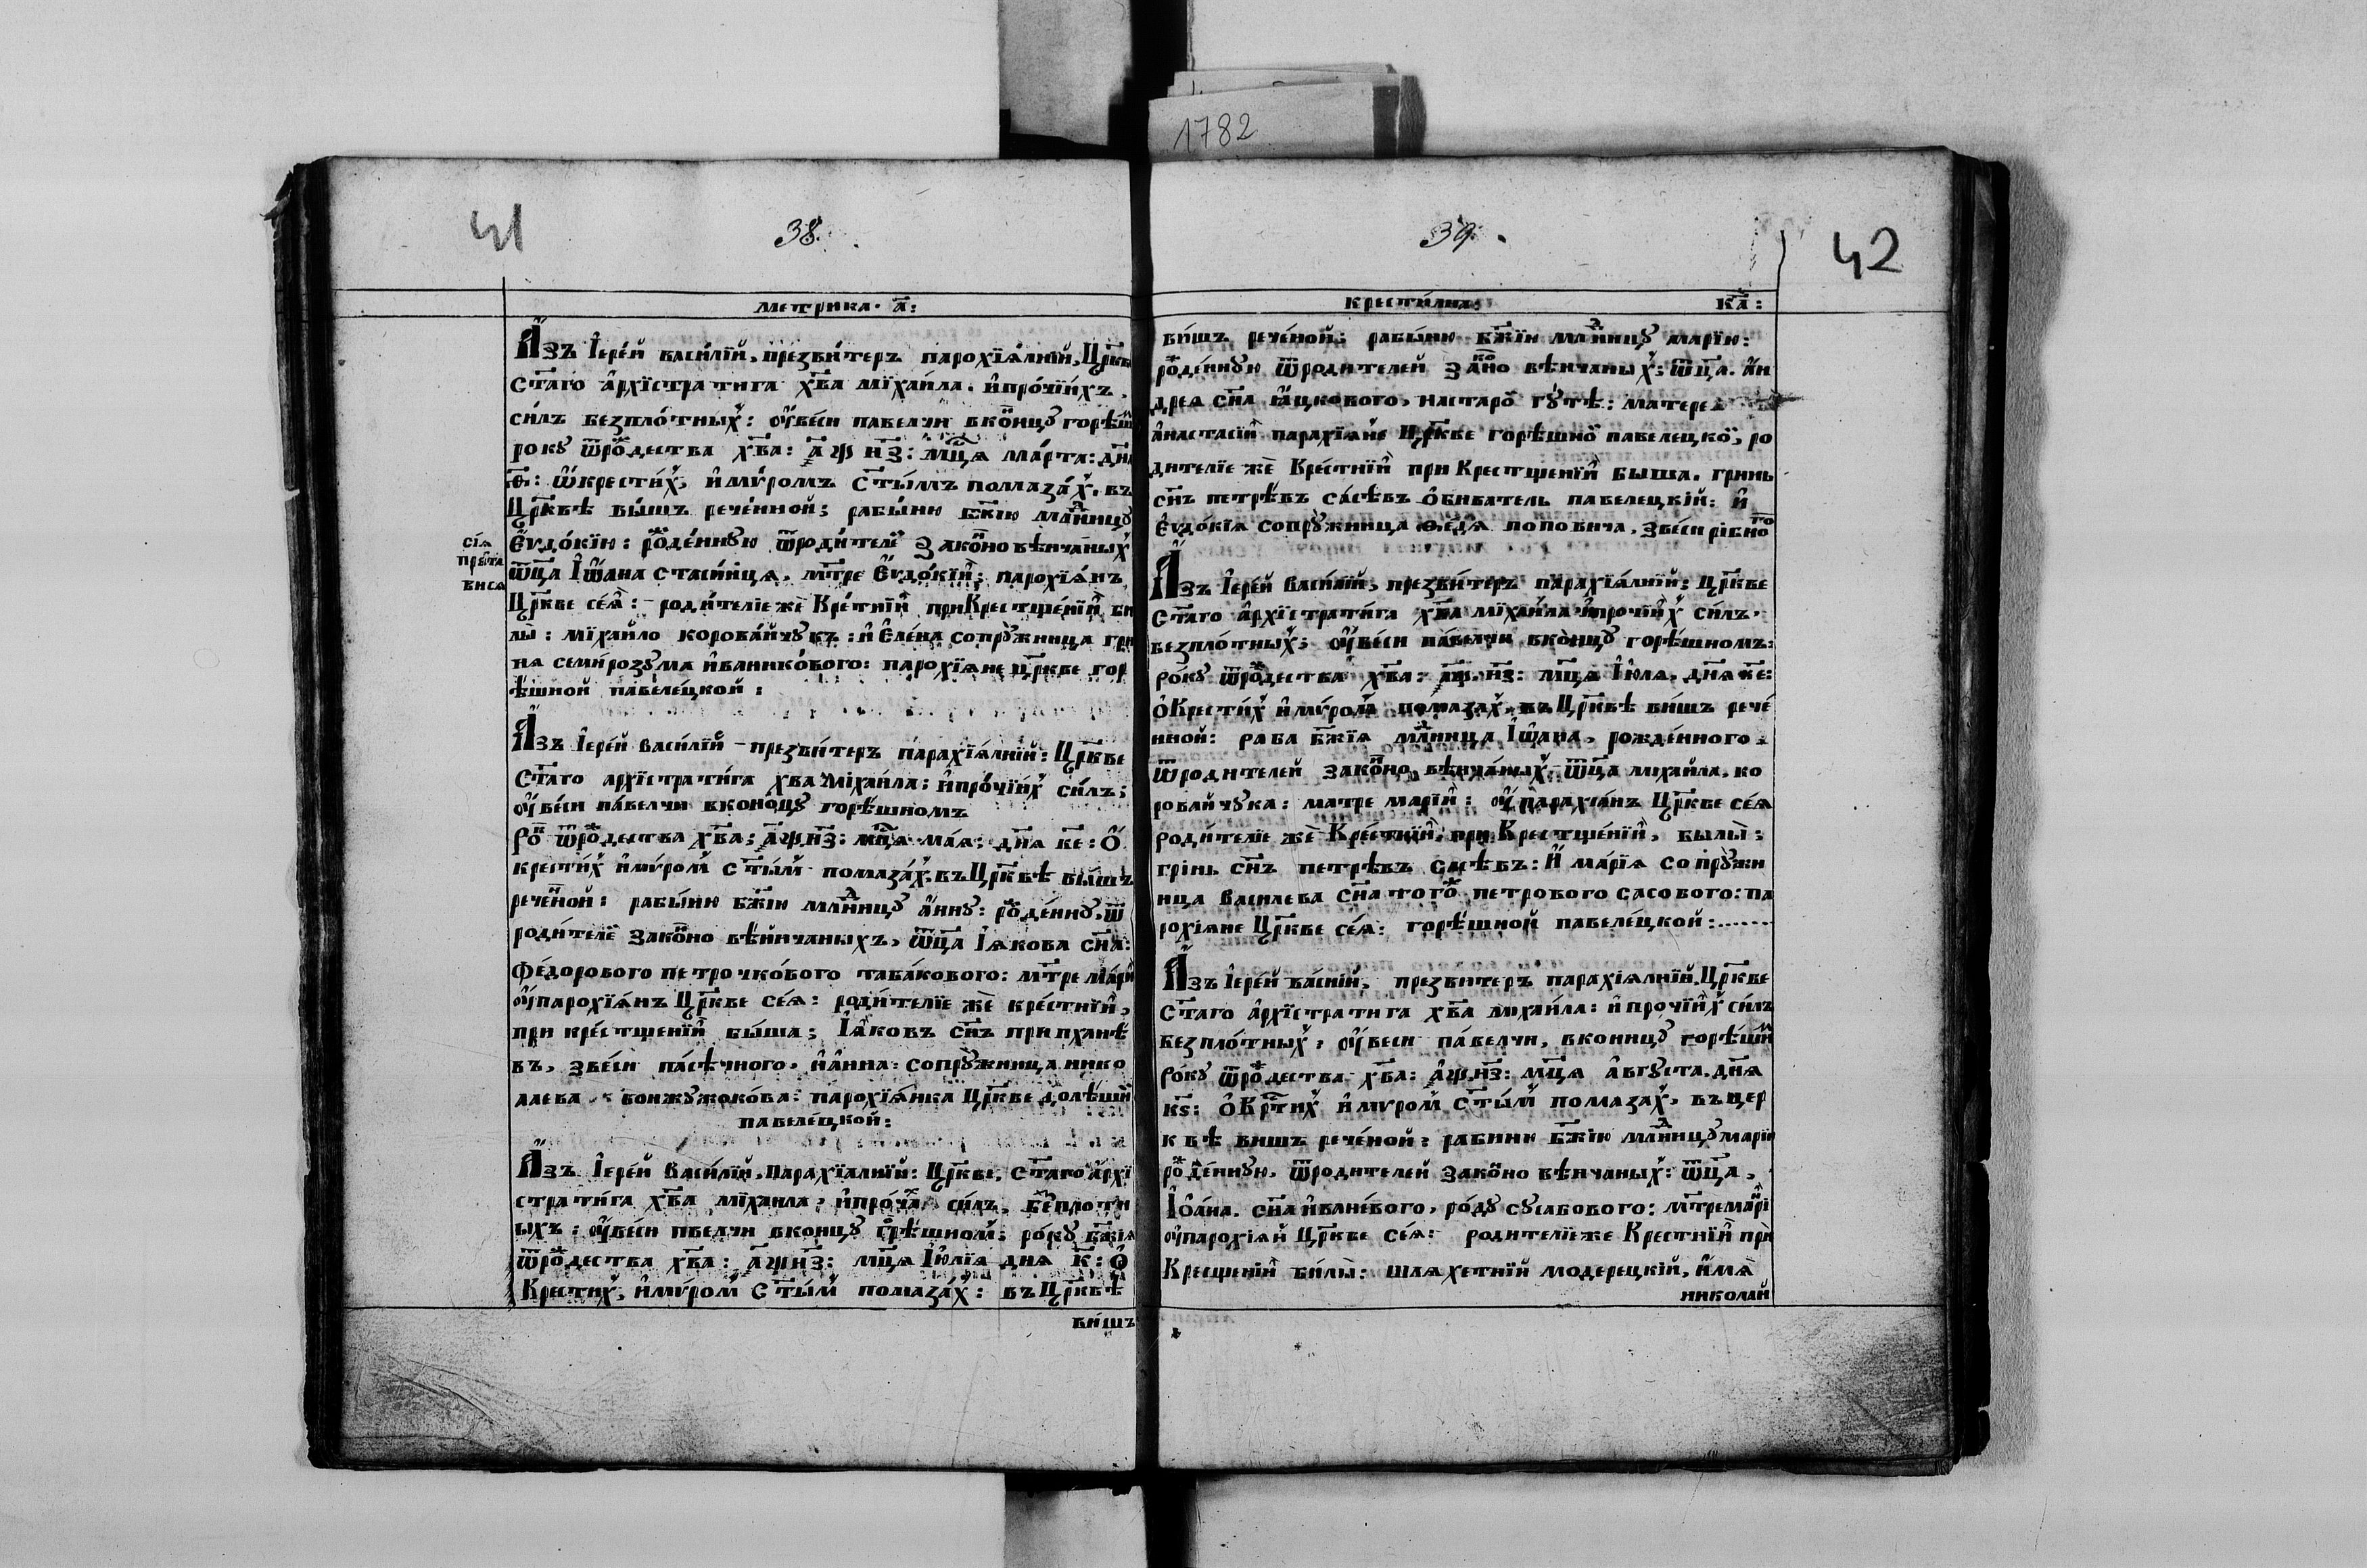 1782
41
38.
метрика. а҃:
Азъ Іерей василїй, презвитеръ парохїялнїй, Црⷦ҇ви
Ст҃аго архїстратига хв҃а мїхаила. ипрочїихъ,
силъ безплотныⷯ: ѹвеси павелчи вконцу горѣшⷨ
року ѿроⷤдества хв҃а: а҃ѱн҃з: мц҃а марта: дн҃я
ѳ҃: ѡкрестиⷯ, имѵромъ ст҃ымъ помазаⷯ, въ
Црк҃вѣ бышъ реченной; рабыню бж҃ію млⷣнницу
Еѵдокїю: роⷤденную ѿродителеⷨ законно вѣнчаныⷯ
ѿц҃а Іѡана стасинця, мт҃ре Еѵдокїи: парохїянъ
сїя
преста
вися
Црк҃ве сея: родителїе же Крестнїи приКрестщенїи би
лы: мїхайло коровайчукъ: и Елена сопружница гри
ня семирозума иваникового: парохїяне црк҃ве гор
ѣшной павелецкой:
Азъ Іерей василїй презвитеръ парахїялнїй: Црк҃ве
Ст҃аго архїстратига хв҃а міхаила: ипрочїиⷯ силъ;
ѹвеси павелчи вконоцу горѣшномъ
Роⷦ ѿроⷤдества хв҃а; а҃ѱн҃з: мц҃а мая: дн҃я ке҃: О
крестиⷯ имѵроⷨ ст҃ыⷨ помазаⷯ, въ Црк҃вѣ бышъ
реченⷩой: рабыню бж҃ію млⷣнницу анну: роⷤденну, ѿ
родителеⷨ законⷩо вѣничаныхъ, ѿц҃а Іякова сн҃а:
Федорового петрочкового табакового: мт҃ре маріи
ѹпарохїянъ Црк҃ве сея: родителїе же крестнїи,
при крестщенїи быша; Іяковъ сн҃ъ припханѣ
въ, звеси пасѣчного, ианна: сопружница нико
лаева бонжужокова: парохїянка Црк҃ве долѣшнⷪ
павелецкой:
Азъ Іерей василїй, парахїалнїй: Црк҃ве. ст҃аго архї
стратига хв҃а мїхаила; ипроча силъ, беⷥплотн
ыхъ; ѹвеси пвелчи вконцу гⷪрѣшноⷨ; року бж҃ія
ѿроⷤдества хв҃а: а҃ѱн҃з: мц҃а Іюлїа дня к҃: О
Крестиⷯ, имѵроⷨ ст҃ыⷨ помазаⷯ: въ Црк҃вѣ
бишъ
39.
42
крестилна;
ка҃:
бишъ реченой: рабыню бж҃їю млⷣнницу марїю:
роⷤденную ѿродителей законо вѣнчаныⷯ: ѿц҃а. ан
дрея сн҃а яцкового, настароⷨ гутѣ: матерея
анастасїи парахїяне Црк҃ве горѣшноⷨ павелецкоⷨ, ро
дителїе же Крестнїи при Крестщенїи быша. гринь
сн҃ъ петрѣвъ сасѣвъ обиватель павелецкїй: и
Еѵдокїя сопружница ѳедя поповича, звеси рівноⷢ҇
Азъ Іерей василїй, презвитеръ парахїялнїй: црк҃ве
Ст҃аго архїстратига хв҃а мїхаила ипрочїиⷯ силъ,
безплотныⷯ; ѹвеси павелчи вконцу горѣшномъ:
року ѿроⷤдества хв҃а: а҃ѱн҃з: мц҃а Іюля, дн҃я ке҃:
Окрестиⷯ имѵроⷨ помазаⷯ, въ Црк҃вѣ бишъ рече
нной: раба бж҃ія млⷣнница Іѡана, рожденного,
ѿродителей законно вѣнчаныⷯ, ѿц҃а михаила, ко
ровайчука: матре марїи: ѹпарахїянъ Црк҃ве сея
родителїе же Крестнїи, при Крестщенїи, былы:
грінь сн҃ъ петрѣвъ сасѣвъ: и марїя сопружи
ница василева сн҃а тогоⷤ петрового сасового: па
рохіяне Црк҃ве сея: горѣшной павелецкой:.......
Азъ Іерей васиій, презвитеръ парахіялнїй, Црк҃ве
Ст҃аго архїстратига хв҃а михаила: ипрочїиⷯ силъ
безплотныⷯ: ѹвеси павелчи, вконицу горѣшⷨн
року ѿроⷤдества хв҃а: а҃ѱн҃з: мц҃а августа. дн҃я
кѕ҃: Окрⷭ҇тиⷯ имѵроⷨ ст҃ыⷨ помазаⷯ, въ цер
квѣ вишъ реченой: рабиню бж҃їю млⷣнницу марїю
роⷤденную, ѿродителей законо вѣнчаныⷯ: ѿц҃а,
Іоана. сн҃а иваневого, роду сусабового: мт҃ре марїи
ѹпарохіяⷩ Црк҃ве сея: родителїе же Крестнїи при
Крещенїи били: шляхетнїй модерецкїй, имя
николай